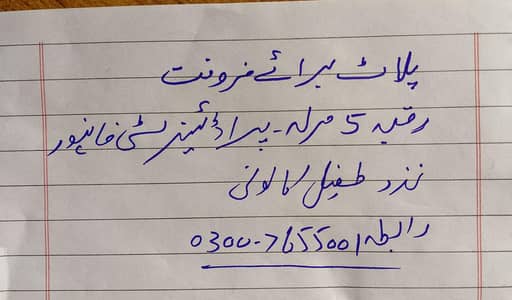 پلاٹ برائے فروخت
رقبہ 5 مرلہ - پیراڈائیز سٹی خانپور
نزد طفیل کالونی
رابطہ 0300-7655001